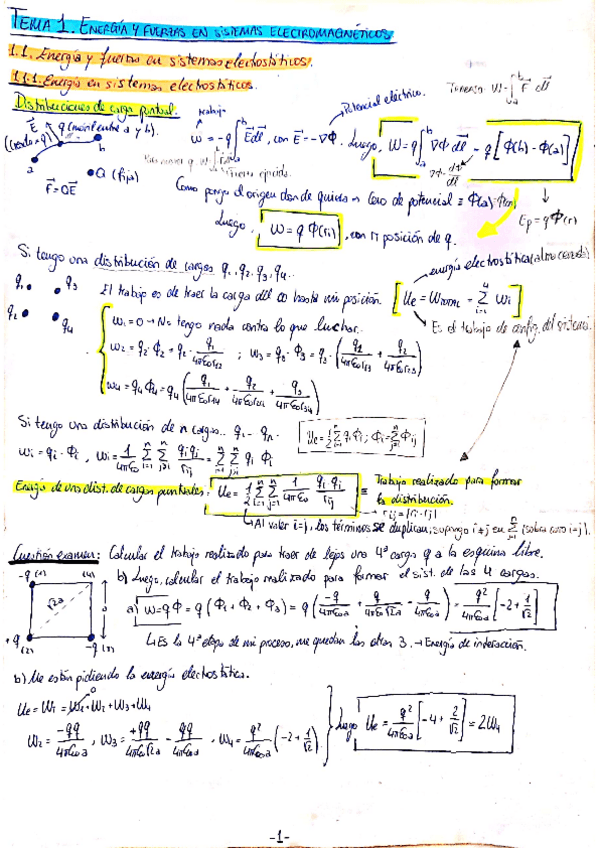 TEMA 1. ENERGÍA Y FUERZAS EN SISTEMAS ELECTROMAGNÉTICOS
1.1. Energía y fuerza en sistemas electrostáticos.
1.1.1. Energía en sistemas electrostáticos.
Distribuciones de carga puntual.
trabajo
Potencial eléctrico.
W = -q ∫_a^b E dl, con E = -∇Φ. Luego, W = q ∫_a^b ∇Φ·dl = q[Φ(b) - Φ(a)]
a
b
Q (fija)
F = QE
Como pongo el origen donde quiera → Cero de potencial ≡ Φ(a)
Ep = qΦ(r)
Luego, W = q Φ(r₁), con r₁ posición de q.
Si tengo una distribución de cargas q₁, q₂, q₃, q₄..
energía electrostática (almacenada)
q₁ q₃
q₂ q₄
El trabajo es de traer la carga del ∞ hasta mi posición.
Ue = W_TOTAL = Σ_{i=1}^4 Wi
Es el trabajo de config. del sistema.
W₁ = 0 → No tengo nada contra lo que luchar.
W₂ = q₂·Φ₂ = q₂· q₁/4πε₀r₁₂ ; W₃ = q₃·Φ₃ = q₃·(q₁/4πε₀r₁₃ + q₂/4πε₀r₂₃)
W₄ = q₄Φ₄ = q₄(q₁/4πε₀r₁₄ + q₂/4πε₀r₂₄ + q₃/4πε₀r₃₄)
Si tengo una distribución de n cargas.. q₁...qₙ.
Ue = 1/2 Σ qᵢΦᵢ ; Φᵢ = Σ Φᵢⱼ
Wi = qi·Φi , Wi = 1/4πε₀ Σ Σ qiqj/rij = Σ Σ qi Φi
Energía de una dist. de cargas puntuales: Ue = 1/2 Σ Σ 1/4πε₀ qi qj/rij ≡ Trabajo realizado para formar
la distribución.
rij = |ri-rj|
Al valer i=j, los términos se duplican, supongo i≠j en Σ
Cuestión examen: Calcular el trabajo realizado para traer de lejos una 4ª carga q a la esquina libre.
b) Luego, calcular el trabajo realizado para formar el sist. de las 4 cargas.
-q (1) (4)
√2a
+q (2) -q (3)
a) W = qΦ = q(Φ₁ + Φ₂ + Φ₃) = q(-q/4πε₀a + q/4πε₀√2a - q/4πε₀a) = q²/4πε₀a [-2 + 1/√2]
Es la 4ª etapa de mi proceso, me quedan las otras 3. → Energía de interacción.
b) Me están pidiendo la energía electrostática.
Ue = W_T = W₁ + W₂ + W₃ + W₄
W₂ = -qq/4πε₀a , W₃ = +qq/4πε₀√2a - qq/4πε₀a , W₄ = q²/4πε₀a (-2 + 1/√2)
Luego Ue = q²/4πε₀a [-4 + 2/√2] = 2W₄
-1-